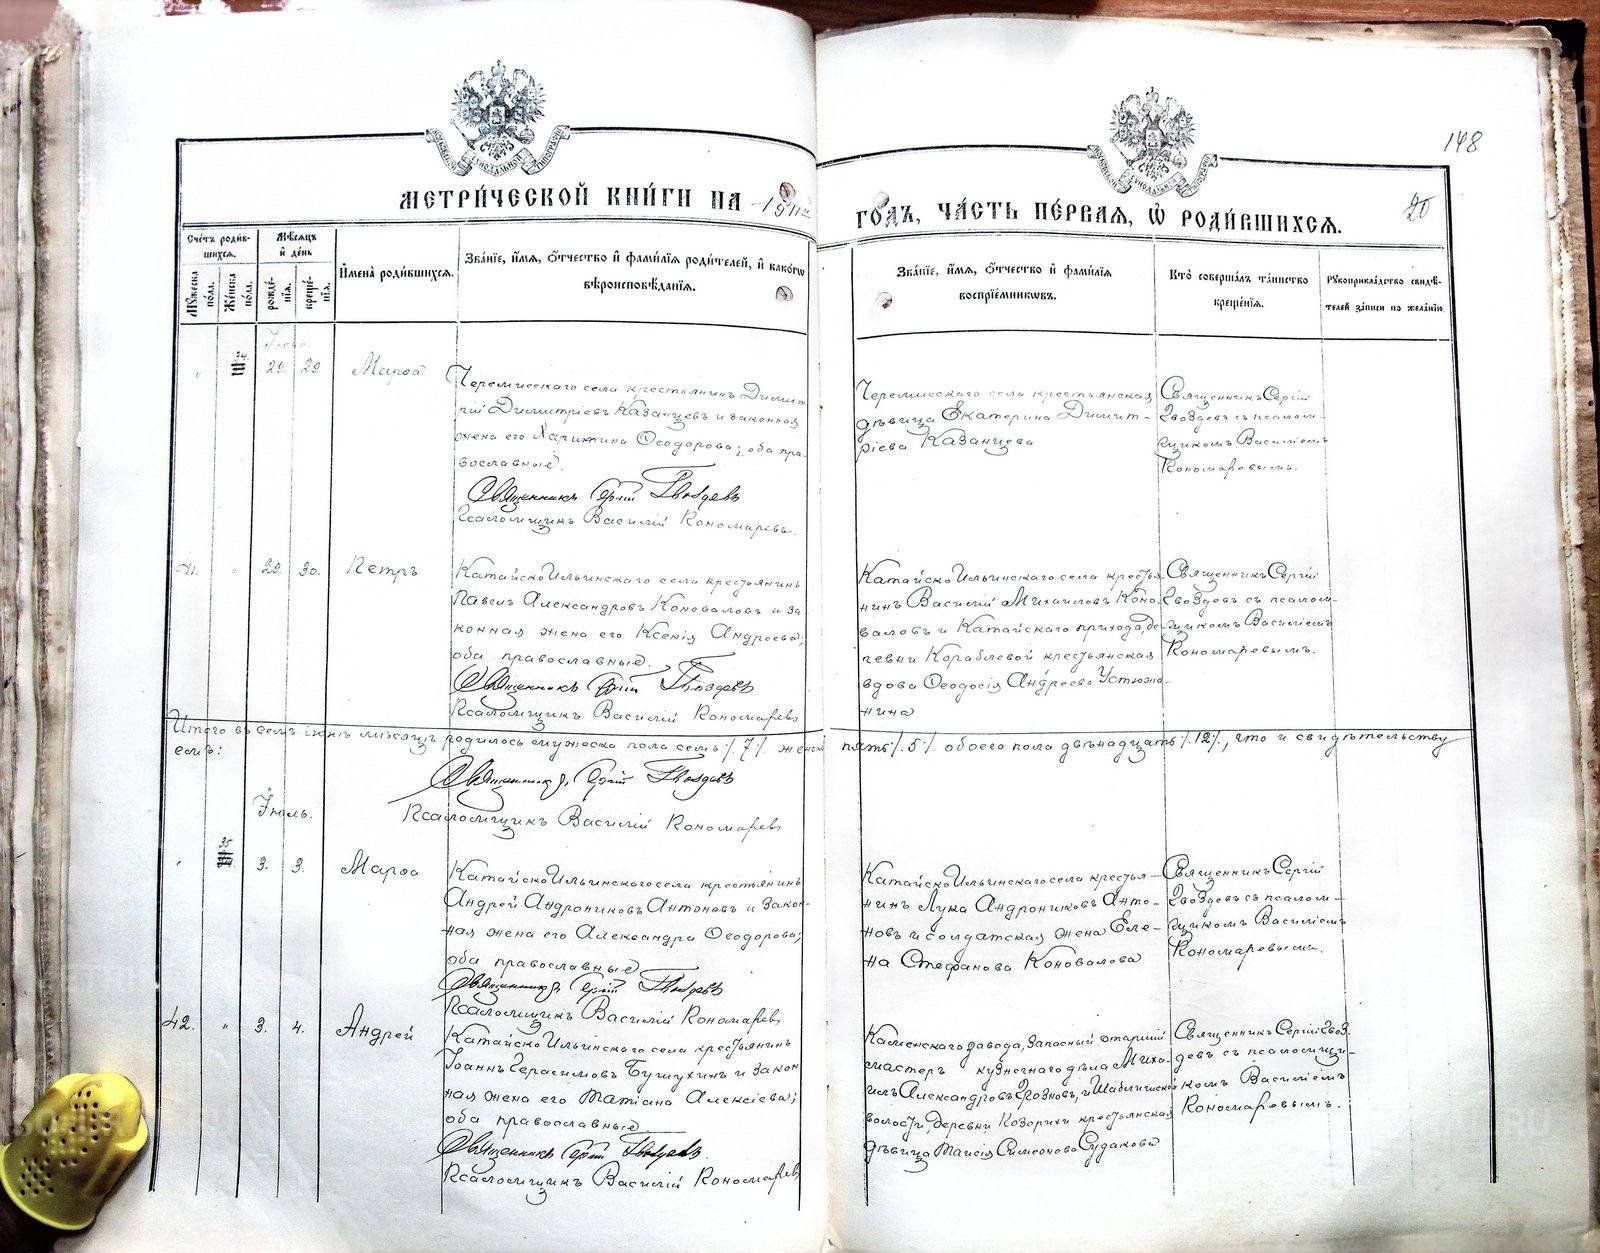 148
МЕТРИ́ЧЕСКОЙ КНИ́ГИ НА 1911
ГОДЪ, ЧА́СТЬ ПЕ́РВАЯ, Ѿ РОДИ́ВШИХСЯ.
20
Сче́тъ роди́в-
шихся.
Мꙋжеска
по́ла.
Же́нска
по́ла.
Мѣ́сяцъ
и҆ де́нь
рожде́-
нія.
креще́-
нія.
И҆мена̀ роди́вшихся.
Зва́нїе, и҆́мя, ѻ҆́тчество и҆ фами́лїя роди́телей, и҆ како́гѡ
вѣроисповѣ́данїя.
Зва́нїе, и҆́мя, ѻ҆́тчество и҆ фами́лїя
воспрїе́мникѡвъ.
Кто̀ соверша́лъ та́инство
креще́нїя.
Рꙋкоприкла́дство свидѣ́-
телей за́писи по жела́нїю.
Іюнь
" 34. 29. 29. Марѳа
Черемисскаго села крестьянинъ Димит-
рій Димитріевъ Казанцевъ и законная
жена его Харитина Ѳеодорова; оба пра-
вославные.
Священникъ Сергій Гвоздевъ
Псаломщикъ Василій Кономаревъ.
Черемисскаго села крестьянская
дѣвица Екатерина Димит-
ріева Казанцева
Священникъ Сергій
Гвоздевъ съ псалом-
щикомъ Василіемъ
Кономаревымъ.
41. " 29. 30. Петръ
Катайско Ильинскаго села крестьянинъ
Павелъ Александровъ Коноваловъ и за-
конная жена его Ксенія Андреева;
оба православные.
Священникъ Сергій Гвоздевъ
Псаломщикъ Василій Кономаревъ
Катайско Ильинскаго села крестья-
нинъ Василій Михаиловъ Коно-
валовъ и Катайскаго прихода, де-
ревни Кораблевой крестьянская
вдова Ѳеодосія Андреева Устюжа-
нина
Священникъ Сергій
Гвоздевъ съ псалом-
щикомъ Василіемъ
Кономаревымъ.
Итого въ семъ іюнѣ мѣсяцѣ родилось мужеска пола семь /. 7 /. женска пять /. 5 /. обоего пола двѣнадцать /. 12 /., что и свидѣтельству
емъ:
Священникъ Сергій Гвоздевъ
Псаломщикъ Василій Кономаревъ
Іюль.
" 35 3. 3. Марѳа
Катайско Ильинскаго села крестьянинъ
Андрей Андрониковъ Антоновъ и закон-
ная жена его Александра Ѳеодорова;
оба православные
Священникъ Сергій Гвоздевъ
Псаломщикъ Василій Кономаревъ
Катайско Ильинскаго села крестья-
нинъ Лука Андрониковъ Анто-
новъ и солдатская жена Еле-
на Стефанова Коновалова
Священникъ Сергій
Гвоздевъ съ псалом-
щикомъ Василіемъ
Кономаревымъ.
42. " 3. 4. Андрей
Катайско Ильинскаго села крестьянинъ
Іоаннъ Герасимовъ Бушухинъ и закон
ная жена его Татіана Алексіева;
оба православные.
Священникъ Сергій Гвоздевъ.
Псаломщикъ Василій Кономаревъ
Каменскаго завода, запасный старшій
мастеръ кузнечнаго дѣла Миха-
илъ Александровъ Грозновъ, и
волости, деревни Козорихи крестьянская
дѣвица Таисія Симеонова Судакова
Священникъ Сергій Гвоз
девъ съ псаломщи-
комъ Василіемъ
Кономаревымъ.